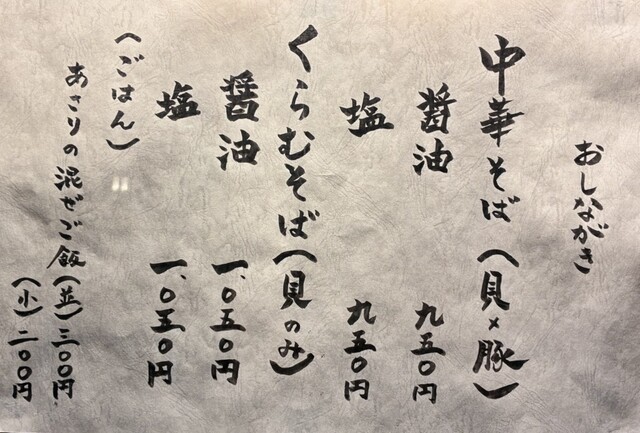 おしながき
中華そば（貝×豚）
醤油 九五〇円
塩 九五〇円
くらむそば（貝のみ）
醤油 一、〇五〇円
塩 一、〇五〇円
（ごはん）
あさりの混ぜご飯（並）三〇〇円
（小）二〇〇円